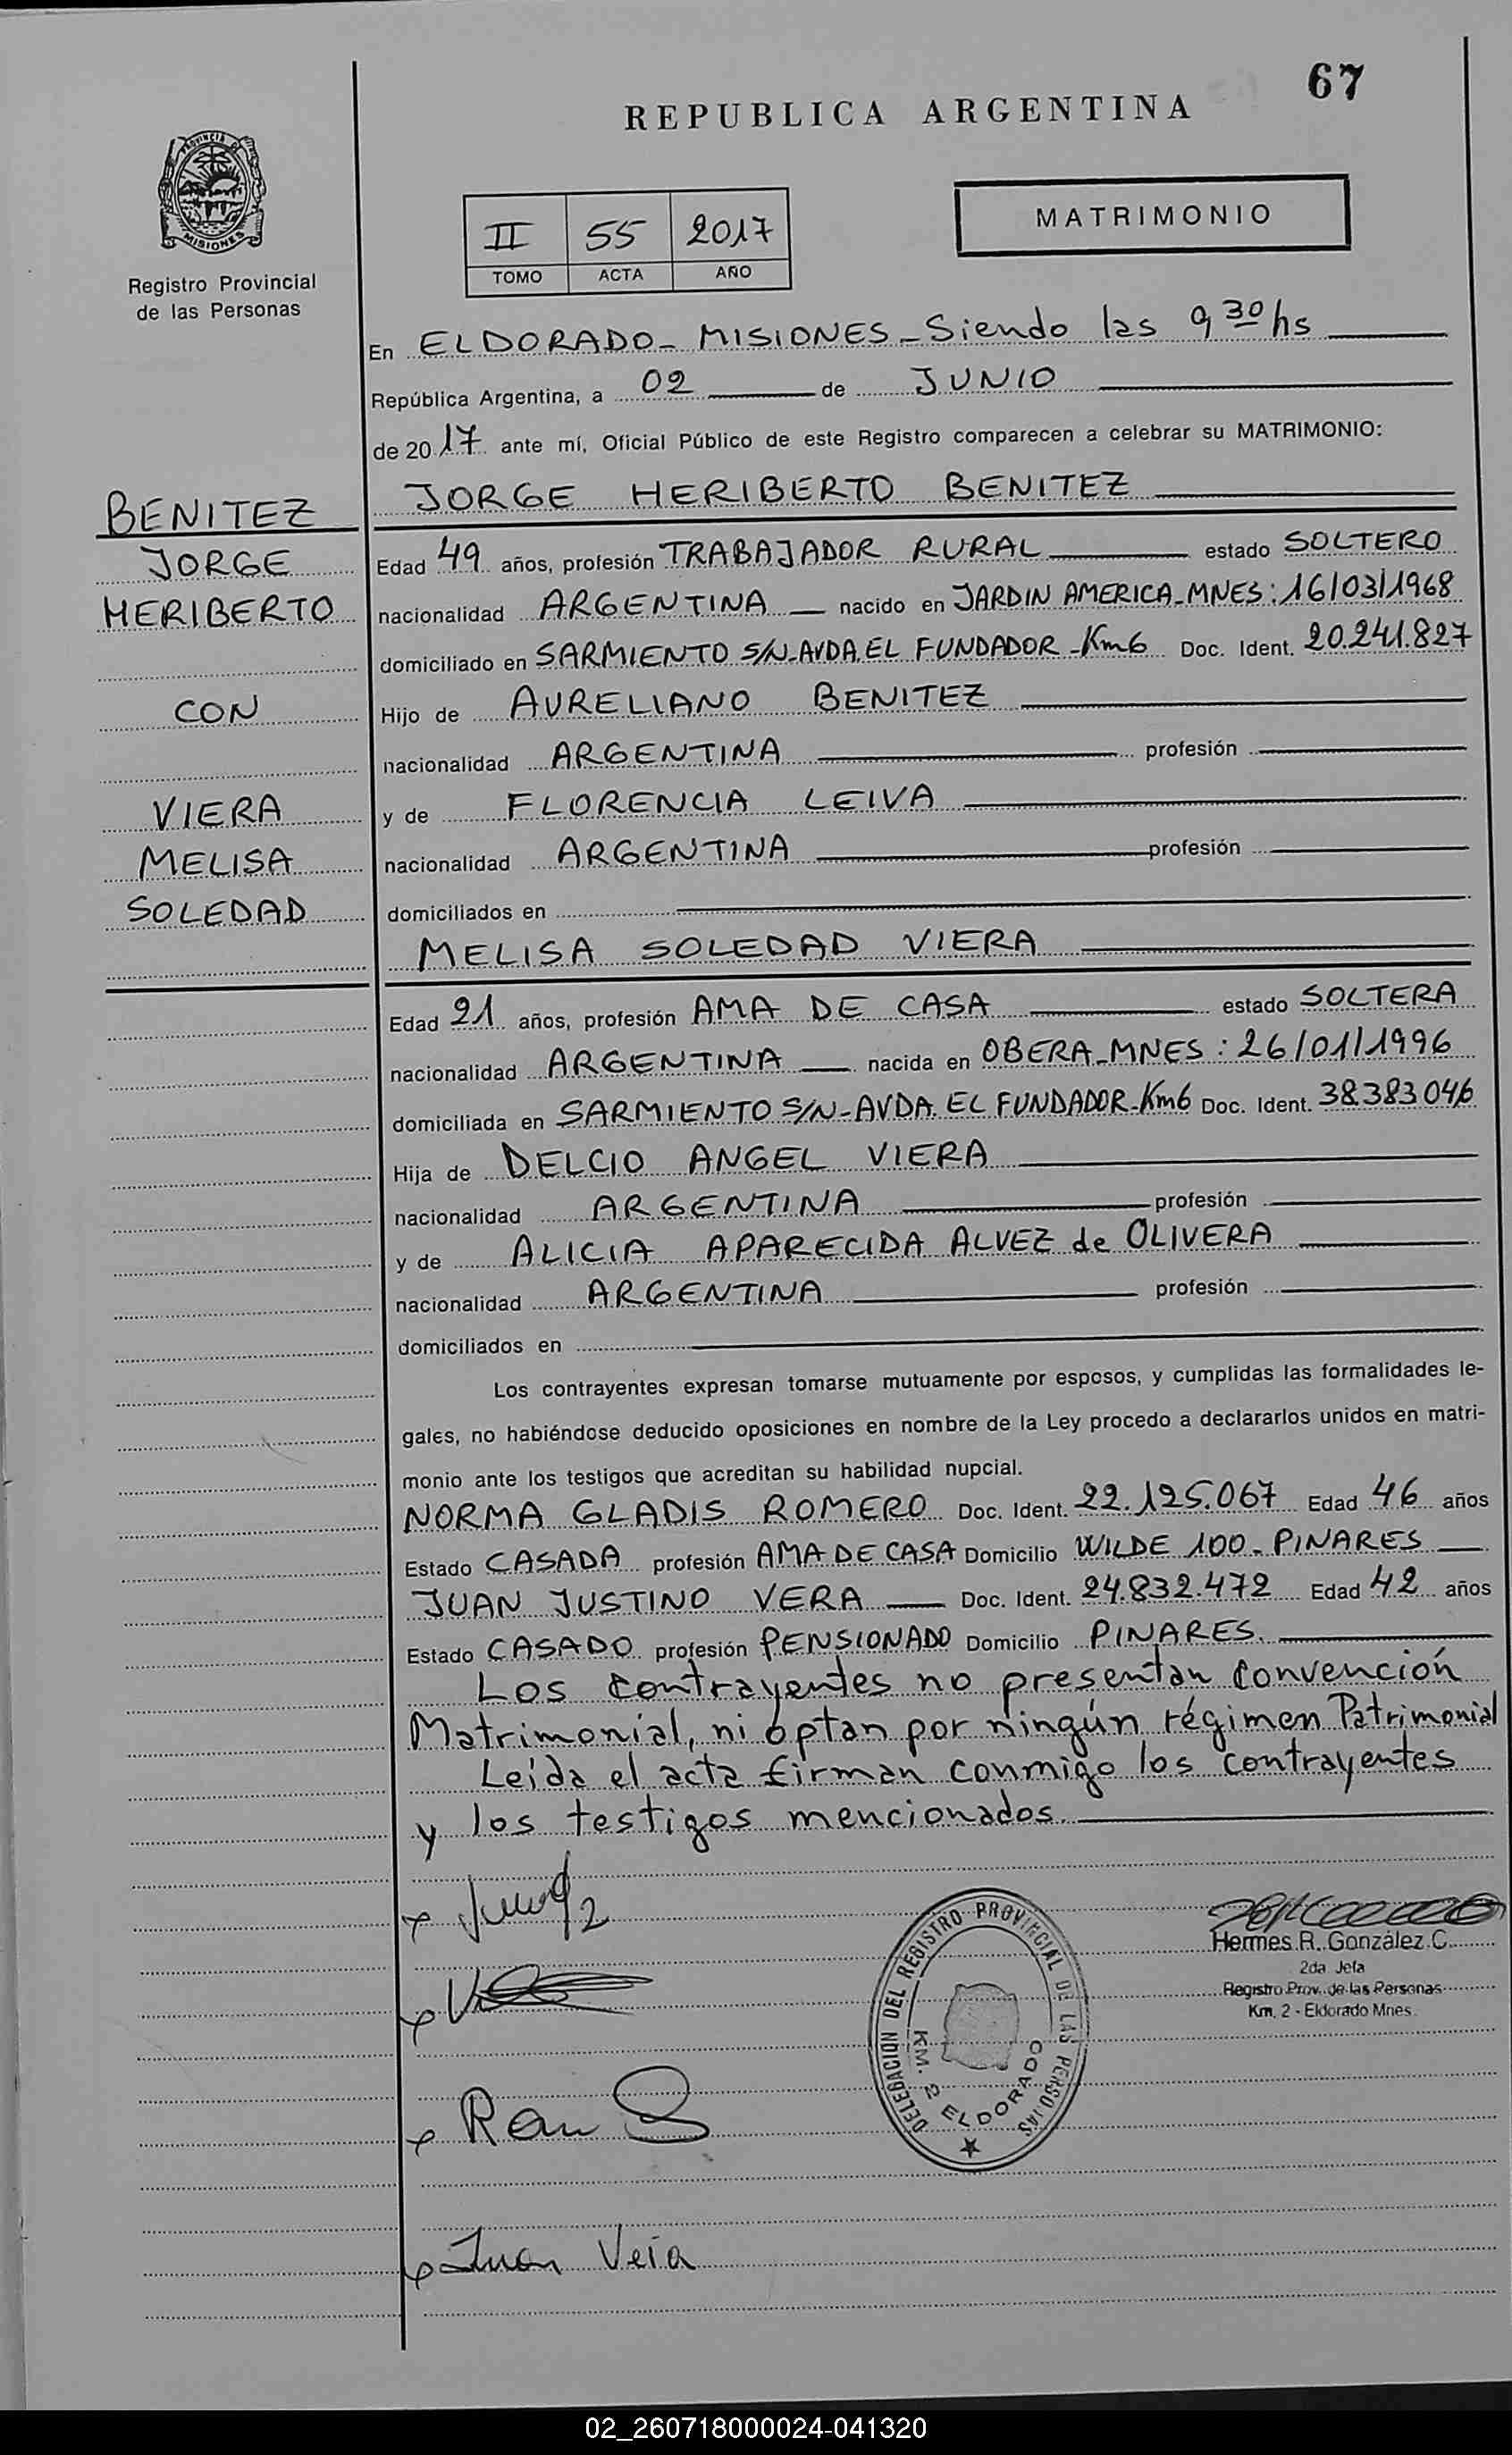 67
REPUBLICA ARGENTINA
PROVINCIA DE
MISIONES
Registro Provincial
de las Personas
II 55 2017
TOMO ACTA AÑO
MATRIMONIO
En ELDORADO - MISIONES - Siendo las 9 30 hs
República Argentina, a 02 de JUNIO
de 2017 ante mí, Oficial Público de este Registro comparecen a celebrar su MATRIMONIO:
BENITEZ
JORGE
HERIBERTO
CON
VIERA
MELISA
SOLEDAD
JORGE HERIBERTO BENITEZ
Edad 49 años, profesión TRABAJADOR RURAL estado SOLTERO
nacionalidad ARGENTINA nacido en JARDIN AMERICA-MNES: 16/03/1968
domiciliado en SARMIENTO S/N-AVDA. EL FUNDADOR-Km6 Doc. Ident. 20.241.827
Hijo de AURELIANO BENITEZ
nacionalidad ARGENTINA profesión
y de FLORENCIA LEIVA
nacionalidad ARGENTINA profesión
domiciliados en
MELISA SOLEDAD VIERA
Edad 21 años, profesión AMA DE CASA estado SOLTERA
nacionalidad ARGENTINA nacida en OBERA-MNES: 26/01/1996
domiciliada en SARMIENTO S/N-AVDA. EL FUNDADOR-Km6 Doc. Ident. 38.383.046
Hija de DELCIO ANGEL VIERA
nacionalidad ARGENTINA profesión
y de ALICIA APARECIDA ALVEZ de OLIVERA
nacionalidad ARGENTINA profesión
domiciliados en
Los contrayentes expresan tomarse mutuamente por esposos, y cumplidas las formalidades le-
gales, no habiéndose deducido oposiciones en nombre de la Ley procedo a declararlos unidos en matri-
monio ante los testigos que acreditan su habilidad nupcial.
NORMA GLADIS ROMERO Doc. Ident. 22.125.067 Edad 46 años
Estado CASADA profesión AMA DE CASA Domicilio WILDE 100 - PINARES
JUAN JUSTINO VERA Doc. Ident. 24.832.472 Edad 42 años
Estado CASADO profesión PENSIONADO Domicilio PINARES.
Los contrayentes no presentan convención
Matrimonial, ni optan por ningún régimen Patrimonial
Leida el acta firman conmigo los contrayentes
y los testigos mencionados.
DELEGACION DEL REGISTRO PROVINCIAL DE LAS PERSONAS
KM. 2 ELDORADO
Hermes R. González C.
2da. Jefa
Registro Prov. de las Personas
Km. 2 - Eldorado Mnes.
Juan Vera
02_260718000024-041320